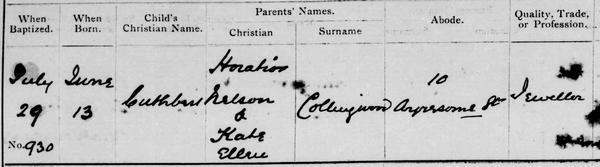 When Baptized.
When Born.
Child's Christian Name.
Parents' Names.
Christian
Surname
Abode.
Quality, Trade, or Profession.
July 29
No. 930
June 13
Cuthbert
Horatio Nelson & Kate Ellen
Collingwood
10 Ayresome St
Jeweller